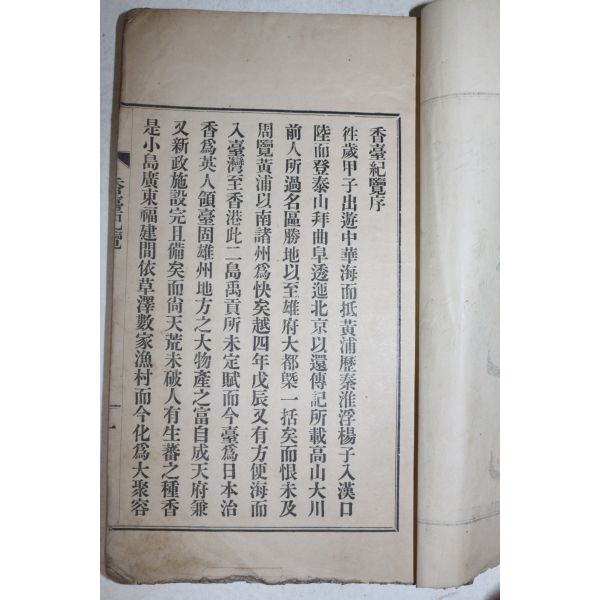 香臺紀覽序
徃歲甲子出遊中華海而抵黃浦歷秦淮浮楊子入漢口
陸而登泰山拜曲阜透迤北京以還傳記所載高山大川
前人所過名區勝地以至雄府大都槩一括矣而恨未及
周覽黃浦以南諸州爲快矣越四年戊辰又有方便海而
入臺灣至香港此二島禹貢所未定賦而今臺爲日本治
香爲英人領臺固雄州地方之大物產之富自成天府兼
又新政施設完且備矣而尙天荒未破人有生蕃之種香
是小島廣東福建間依草澤數家漁村而今化爲大聚容
香臺紀覽
一